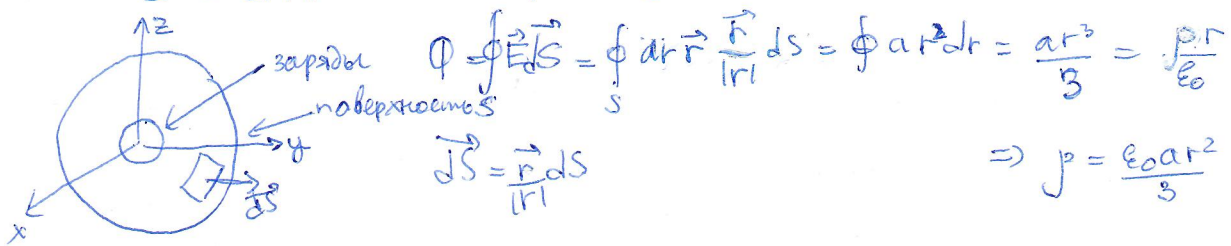 z
заряды
поверхность S
y
x
d\vec{S}
Φ = ∮_S \vec{E} d\vec{S} = ∮_S ar \vec{r} \frac{\vec{r}}{|r|} dS = ∮ ar² dr = \frac{ar³}{3} = \frac{ρr}{ε₀}
d\vec{S} = \frac{\vec{r}}{|r|} dS
⇒ ρ = \frac{ε₀ar²}{3}